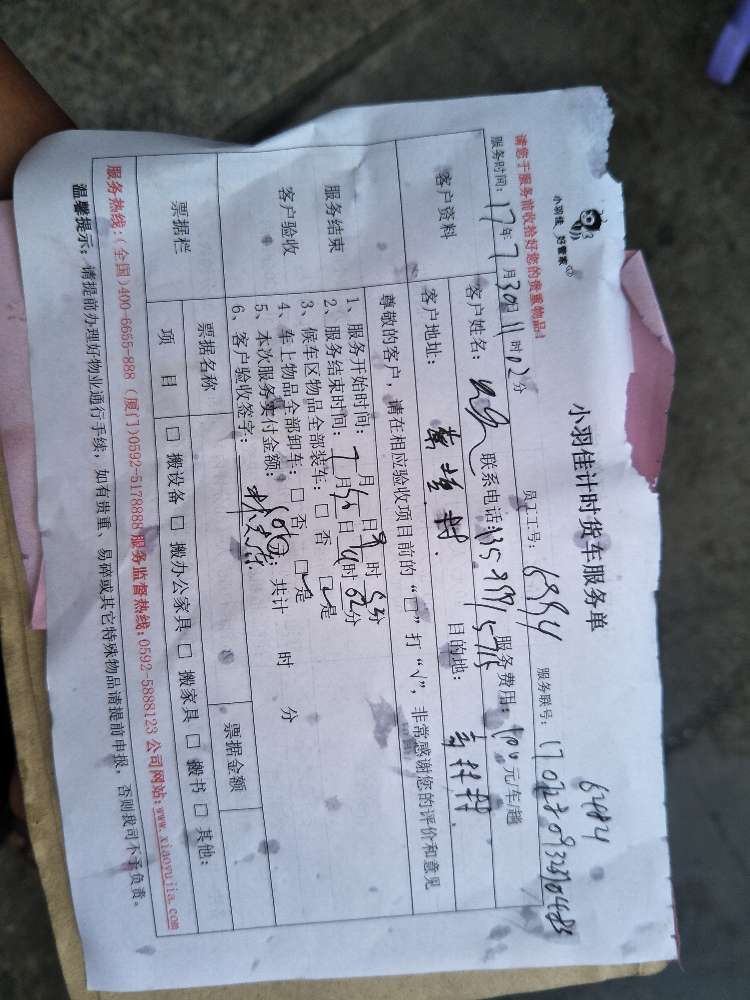 小羽佳 好管家
小羽佳计时货车服务单
请您于服务前收拾好您的贵重物品！
服务时间：17年7月30日11时02分 员工工号： 服务联号：
客户资料
客户姓名： 联系电话： 服务费用： 元/车/趟
客户地址： 目的地：
尊敬的客户，请在相应验收项目前的“□”打“√”，非常感谢您的评价和意见
服务结束
客户验收
1、服务开始时间： 月 日 时 分
2、服务结束时间：7月 日 时02分
3、候车区物品全部装车：□否 □是
4、车上物品全部卸车：□否 □是
5、本次服务实付金额： 共计 时 分
6、客户验收签字：
票据栏 票据名称 票据金额
项目 □ 搬设备 □ 搬办公家具 □ 搬家具 □ 搬书 □ 其他：
服务热线：(全国)400-6655-888 (厦门)0592-5178888 服务监督热线：0592-5888123 公司网站：www.xiaoyujia.com
温馨提示：请提前办理好物业通行手续，如有贵重、易碎或其它特殊物品请提前申报，否则我司不予负责。